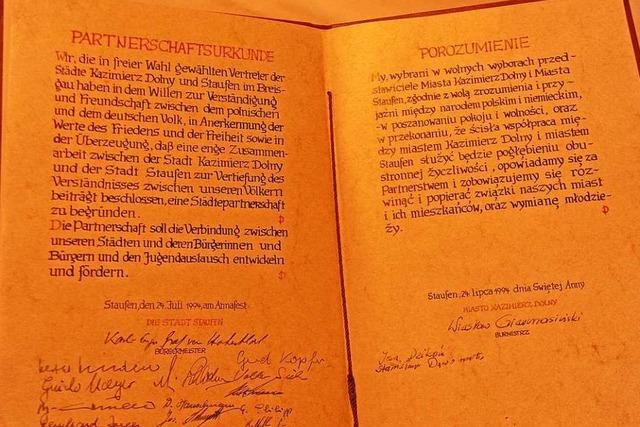 PARTNERSCHAFTSURKUNDE
Wir, die in freier Wahl gewählten Vertreter der
Städte Kazimierz Dolny und Staufen im Breis-
gau haben in dem Willen zur Verständigung
und Freundschaft zwischen dem polnischen
und dem deutschen Volk, in Anerkennung der
Werte des Friedens und der Freiheit sowie in
der Überzeugung, daß eine enge Zusammen-
arbeit zwischen der Stadt Kazimierz Dolny
und der Stadt Staufen zur Vertiefung des
Verständnisses zwischen unseren Völkern
beiträgt beschlossen, eine Städtepartnerschaft
zu begründen.
Die Partnerschaft soll die Verbindung zwischen
unseren Städten und deren Bürgerinnen und
Bürgern und den Jugendaustausch entwickeln
und fördern.
Staufen, den 24. Juli 1994, am Annafest
DIE STADT STAUFEN
Graf von
BÜRGERMEISTER
Gerd Kopfer
Guido Meyer
POROZUMIENIE
My, wybrani w wolnych wyborach przed-
stawiciele Miasta Kazimierz Dolny i Miasta
Staufen, zgodnie z wolą zrozumienia i przy-
jaźni między narodem polskim i niemieckim,
w poszanowaniu pokoju i wolności, oraz
w przekonaniu, że ścisła współpraca mię-
dzy miastem Kazimierz Dolny i miastem
Staufen służyć będzie pogłębieniu obu-
stronnej życzliwości, opowiadamy się za
Partnerstwem i zobowiązujemy się roz-
winąć i popierać związki naszych miast
i ich mieszkańców, oraz wymianę młodzie-
ży.
Staufen, 24. lipca 1994 dnia Świętej Anny
MIASTO KAZIMIERZ DOLNY
BURMISTRZ